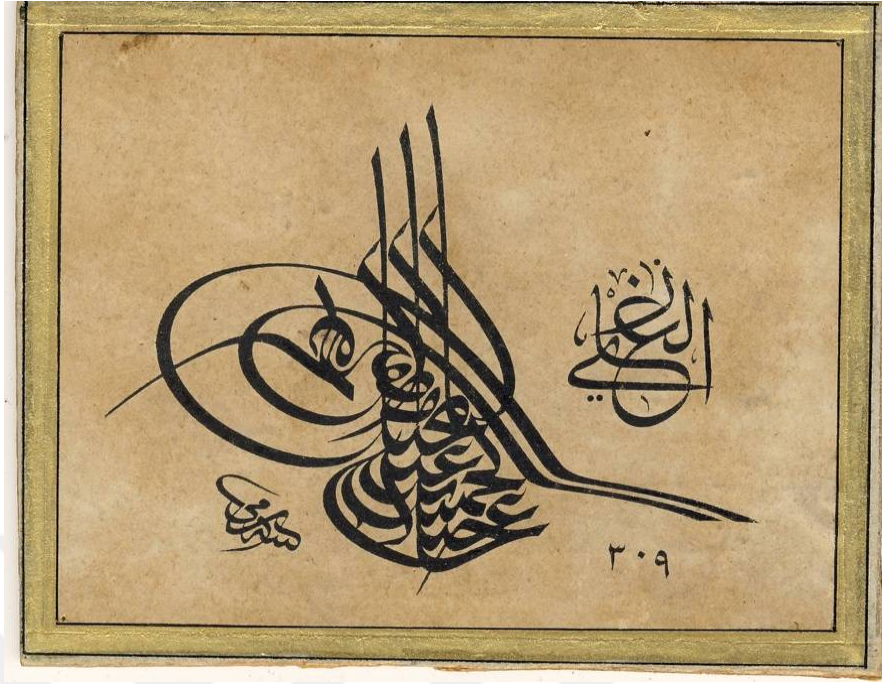 عبد الحميد خان بن عبد المجيد المظفر دائما
الغازي
٣٠٩